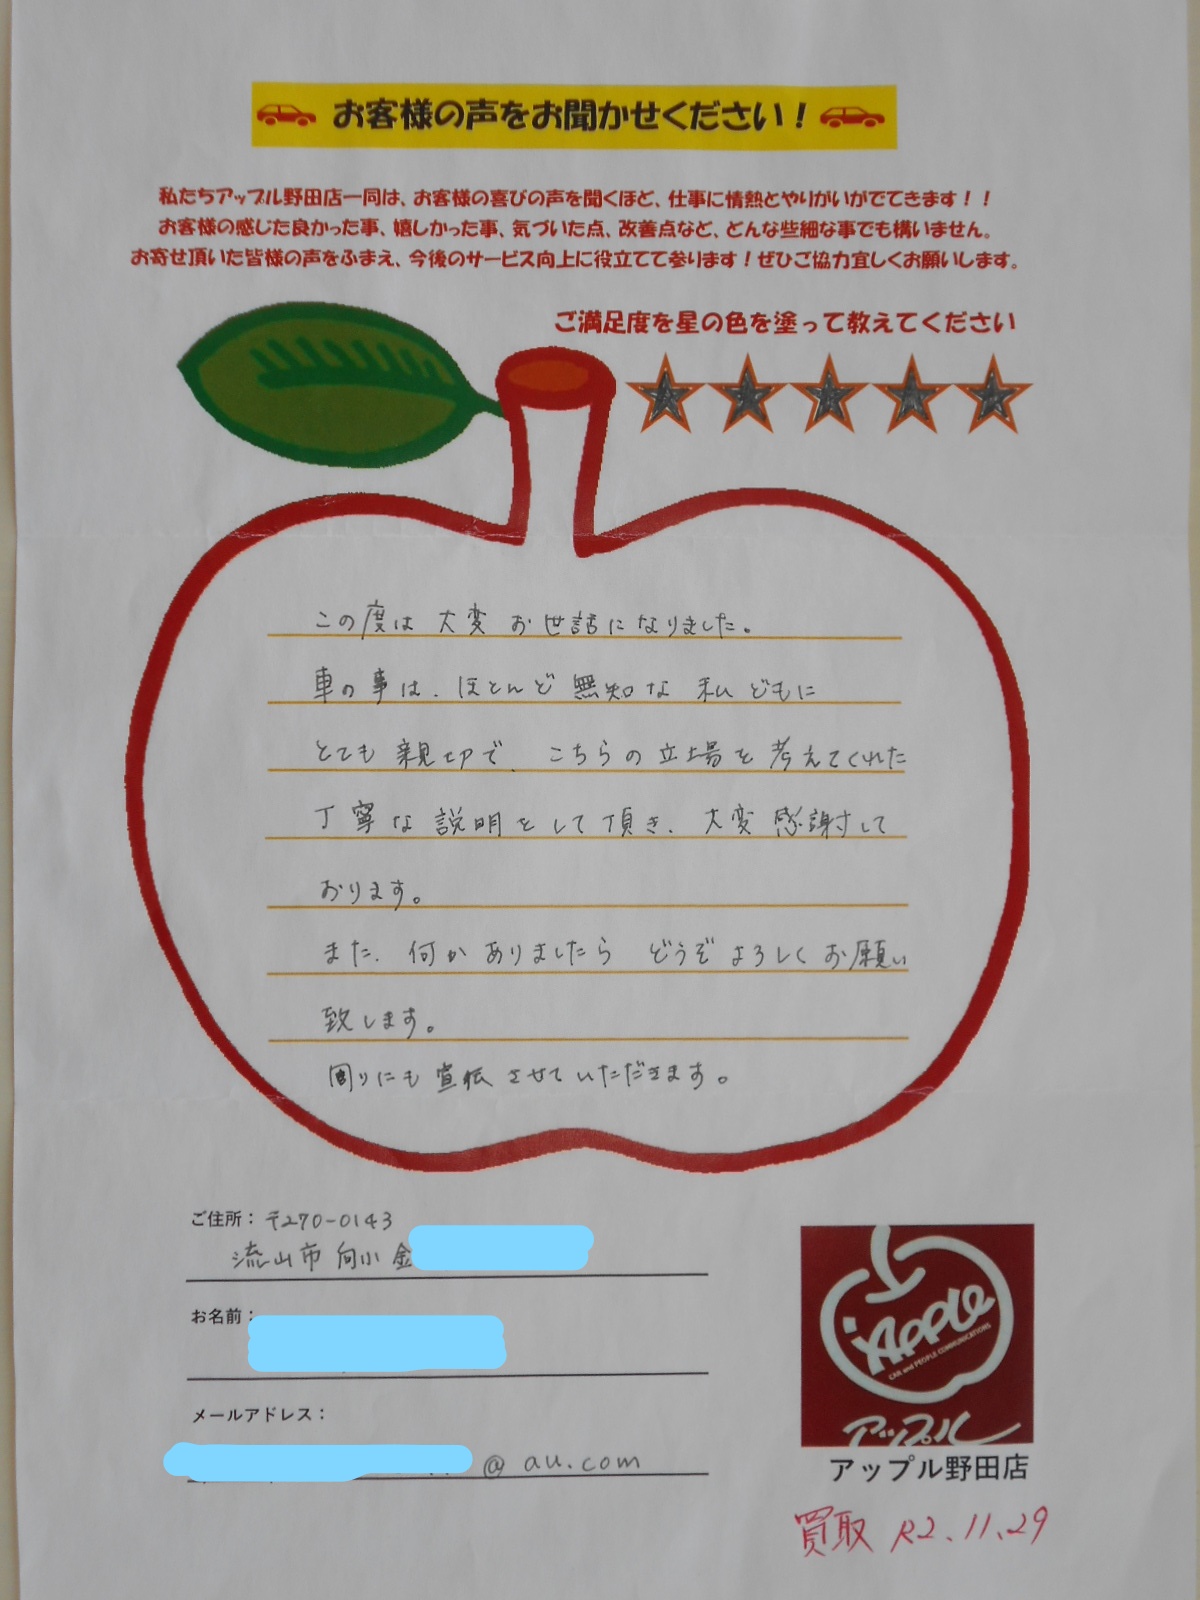 お客様の声をお聞かせください！
私たちアップル野田店一同は、お客様の喜びの声を聞くほど、仕事に情熱とやりがいがでてきます！！
お客様の感じた良かった事、嬉しかった事、気づいた点、改善点など、どんな些細な事でも構いません。
お寄せ頂いた皆様の声をふまえ、今後のサービス向上に役立てて参ります！ぜひご協力宜しくお願いします。
ご満足度を星の色を塗って教えてください
この度は 大変 お世話になりました。
車の事は、ほとんど 無知な 私どもに
とても 親切で、こちらの立場を考えてくれた
丁寧な説明をして頂き、大変感謝して
おります。
また、何かありましたら どうぞよろしくお願い
致します。
周りにも宣伝させていただきます。
ご住所：〒270-0143
流山市 向小金
お名前：
メールアドレス：
@au.com
Apple
CAR and PEOPLE COMMUNICATIONS
アップル
アップル野田店
買取 R2.11.29